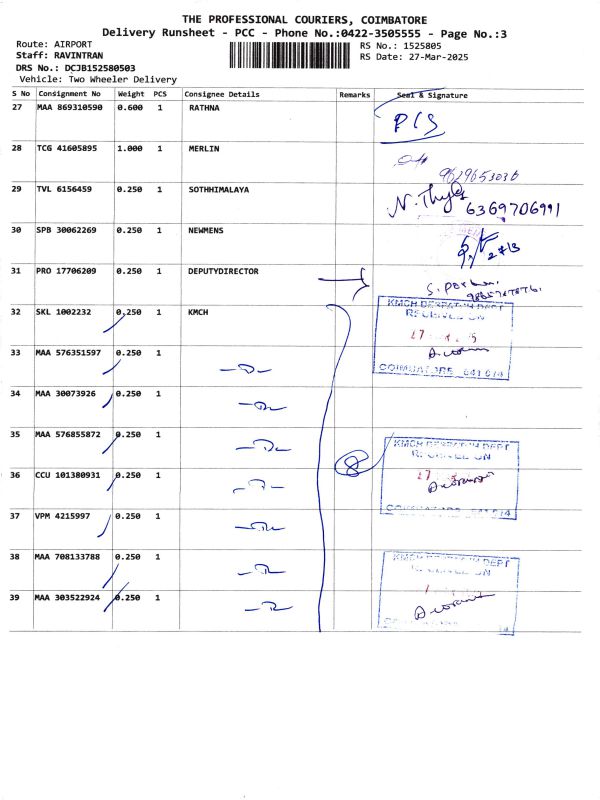 THE PROFESSIONAL COURIERS, COIMBATORE
Delivery Runsheet - PCC - Phone No.:0422-3505555 - Page No.:3
Route: AIRPORT
RS No.: 1525805
Staff: RAVINTRAN
RS Date: 27-Mar-2025
DRS No.: DCJB152580503
Vehicle: Two Wheeler Delivery
S No Consignment No Weight PCS Consignee Details Remarks Seal & Signature
27 MAA 869310590 0.600 1 RATHNA
28 TCG 41605895 1.000 1 MERLIN
9629653036
29 TVL 6156459 0.250 1 SOTHHIMALAYA
6369706991
30 SPB 30062269 0.250 1 NEWMENS
31 PRO 17706209 0.250 1 DEPUTYDIRECTOR
32 SKL 1002232 0.250 1 KMCH
KMCH DESPATCH DEPT
RECEIVED ON
33 MAA 576351597 0.250 1
COIMBATORE 641 014
34 MAA 30073926 0.250 1
35 MAA 576855872 0.250 1
KMCH DESPATCH DEPT
RECEIVED ON
36 CCU 101380931 0.250 1
8
COIMBATORE 641 014
37 VPM 4215997 0.250 1
38 MAA 708133788 0.250 1
KMCH DESPATCH DEPT
RECEIVED ON
39 MAA 303522924 0.250 1